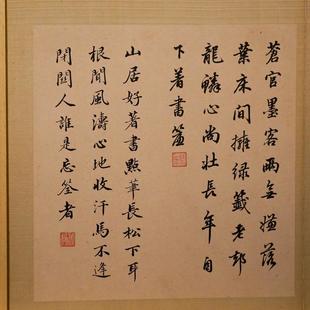 蒼官墨客兩無嫌落
葉床間擁綠籤老郄
龍鱗心尚壯長年自
下著書簾
山居好著書點筆長松下耳
根聞風濤心地收汗馬不逢
閉關人誰是忘筌者